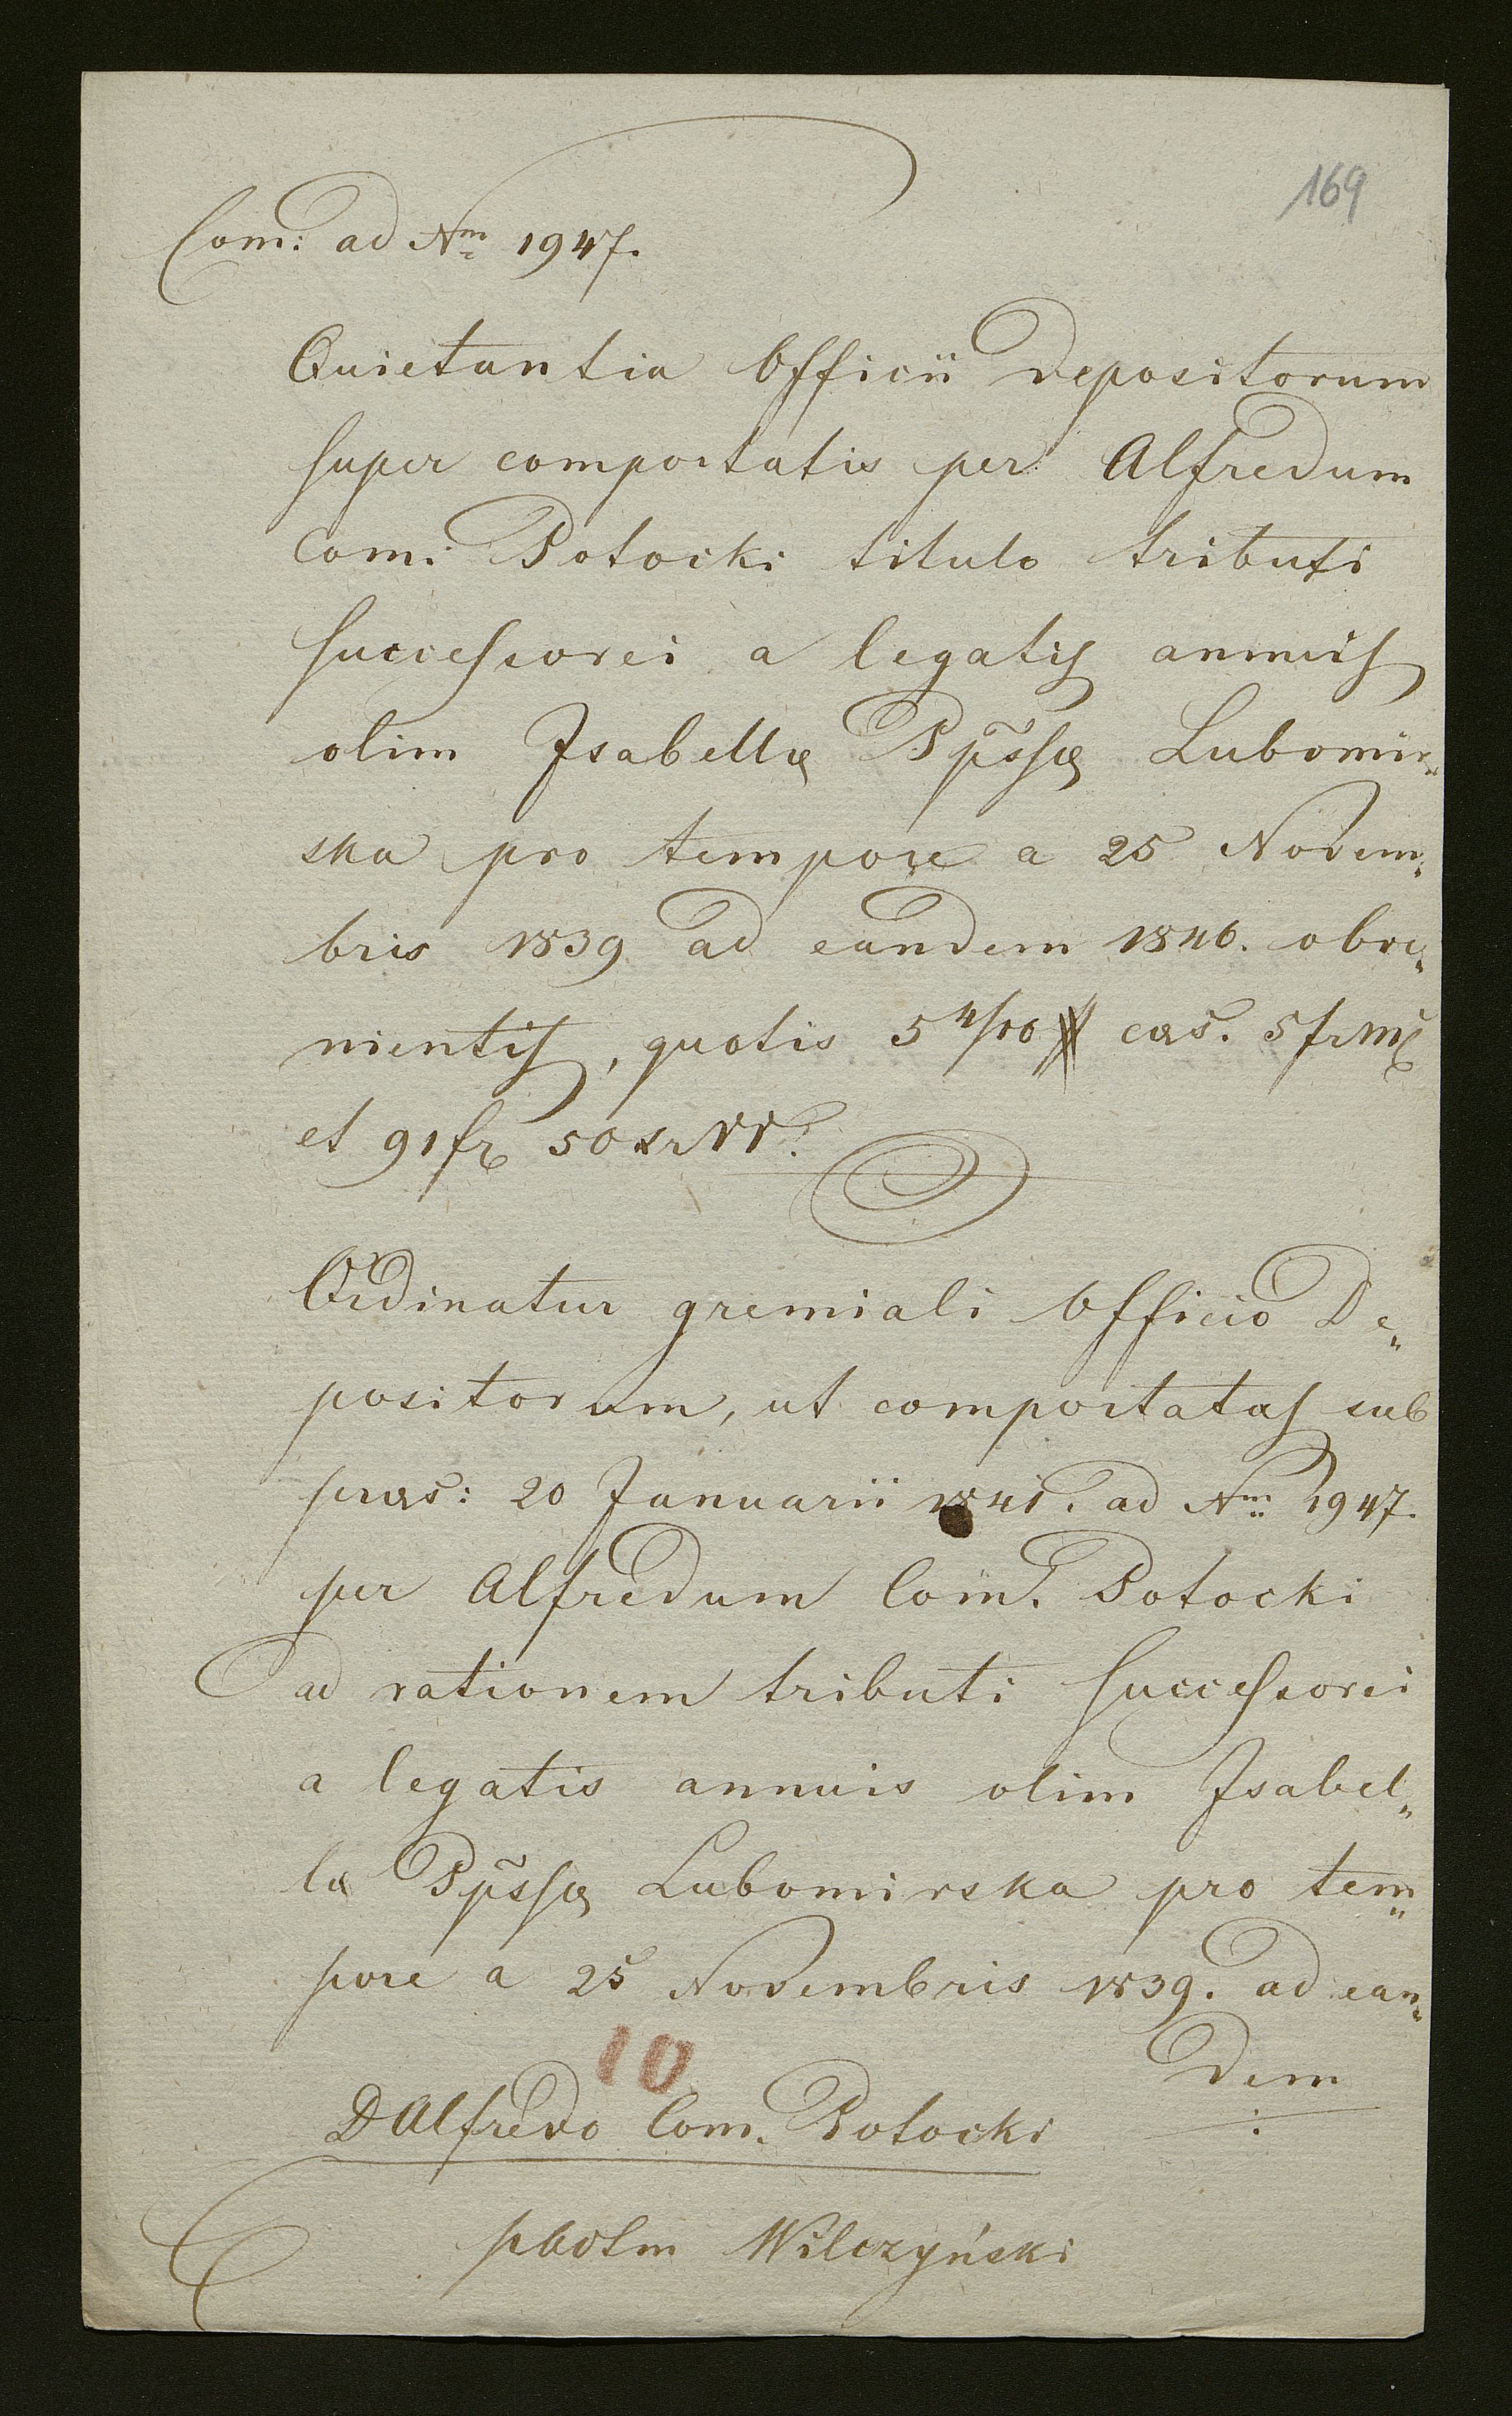 169
Com: ad Nm 1947.
Quietantia Officii Depositorum
super comportatis per Alfredum
Com: Potocki titulo tributi
successorei a legatis annuis
olim Isabellæ Ppssæ Lubomir-
ska pro tempore a 25 Novem-
bris 1839 ad eandem 1840. obve-
nientis, quotis 5 4/100 # cæs. 5 fr
et 91 fr 50 xr
Ordinatur gremiali Officio De-
positorum, ut comportatas sub
præs: 20 Januarii 1841. ad Nm 1947.
per Alfredum Com. Potocki
ad rationem tributi successorei
a legatis annuis olim Isabel-
læ Ppssæ Lubomirska pro tem-
pore a 25 Novembris 1839. ad ean-
dem
10
D Alfredo Com. Potocki
Wilczyński